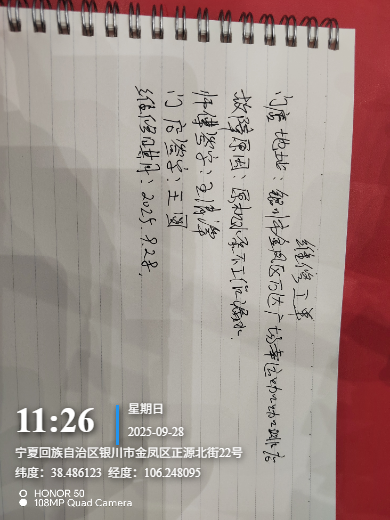 维修工单
门店地址：银川市金凤区万达广场幸运
故障原因：原相水拿不工作，漏水.
师傅签字：王
门店签字：王圆
维修日期：2025.9.28.
11:26
星期日
2025-09-28
宁夏回族自治区银川市金凤区正源北街22号
纬度：38.486123 经度：106.248095
HONOR 50
108MP Quad Camera